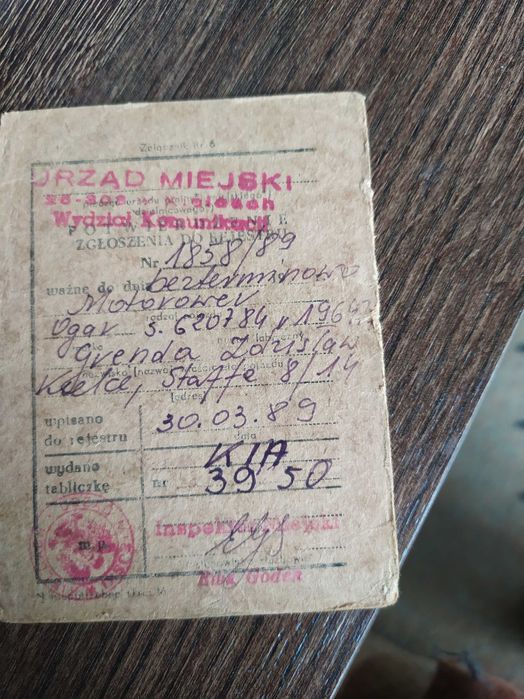 Załącznik nr 6
URZĄD MIEJSKI
w Kielcach
Wydział Komunikacji
ZGŁOSZENIA DO REJESTRU
Nr 1838/89
ważne do dnia bezterminowo
Motorower
Ogar s. 620784 r 1964
Grenda Zdzisław
Kielce, Staffa 8/14
(adres)
wpisano
do rejestru
30.03.89
data
wydano
tabliczkę
nr
KIA
39 50
m.p.
Inspektor Miejski